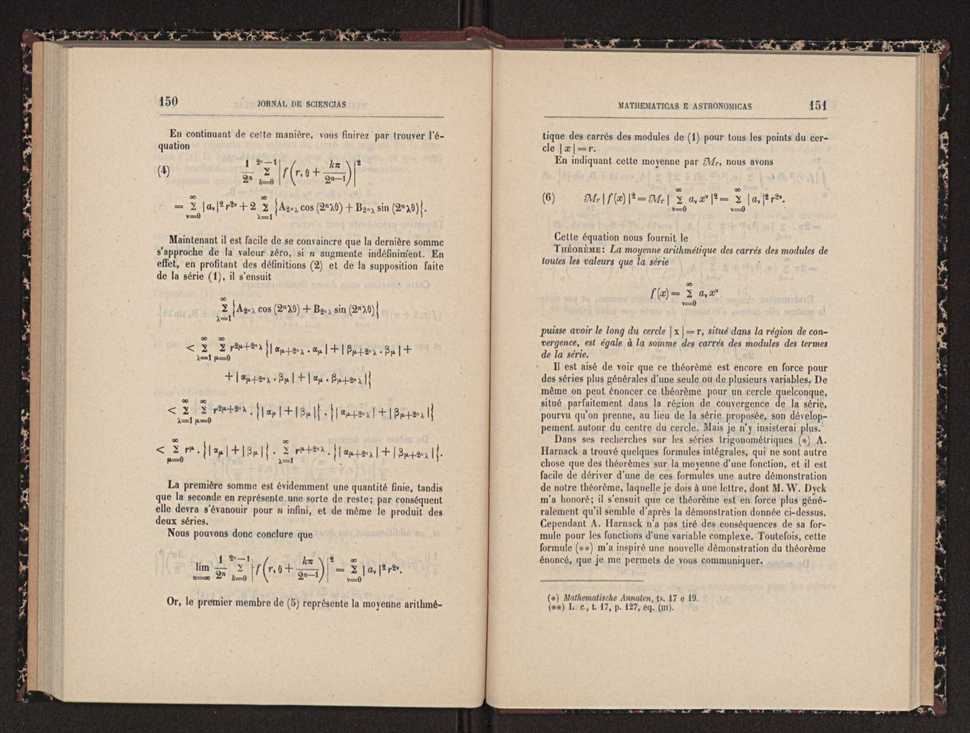 150 JORNAL DE SCIENCIAS
En continuant de cette manière, vous finirez par trouver l'é-
quation
(4) 1/2ⁿ Σ_{k=0}^{2ⁿ−1} | f ( r, θ + kπ/2ⁿ⁻¹ ) |²
= Σ_{ν=0}^{∞} | aᵥ |² r²ᵛ + 2 Σ_{λ=1}^{∞} { A_{2ⁿλ} cos (2ⁿλθ) + B_{2ⁿλ} sin (2ⁿλθ) }.
Maintenant il est facile de se convaincre que la dernière somme
s'approche de la valeur zéro, si n augmente indéfiniment. En
effet, en profitant des définitions (2) et de la supposition faite
de la série (1), il s'ensuit
Σ_{λ=1}^{∞} { A_{2ⁿλ} cos (2ⁿλθ) + B_{2ⁿλ} sin (2ⁿλθ) }
< Σ_{λ=1}^{∞} Σ_{μ=0}^{∞} r^{2μ+2ⁿλ} { | α_{μ+2ⁿλ} . α_μ | + | β_{μ+2ⁿλ} . β_μ | +
+ | α_{μ+2ⁿλ} . β_μ | + | α_μ . β_{μ+2ⁿλ} | }
< Σ_{λ=1}^{∞} Σ_{μ=0}^{∞} r^{2μ+2ⁿλ} . { | α_μ | + | β_μ | } . { | α_{μ+2ⁿλ} | + | β_{μ+2ⁿλ} | }
< Σ_{μ=0}^{∞} r^μ . { | α_μ | + | β_μ | } . Σ_{λ=1}^{∞} r^{μ+2ⁿλ} . { | α_{μ+2ⁿλ} | + | β_{μ+2ⁿλ} | }.
La première somme est évidemment une quantité finie, tandis
que la seconde en représente une sorte de reste; par conséquent
elle devra s'évanouir pour n infini, et de même le produit des
deux séries.
Nous pouvons donc conclure que
lim_{n=∞} 1/2ⁿ Σ_{k=0}^{2ⁿ−1} | f ( r, θ + kπ/2ⁿ⁻¹ ) |² = Σ_{ν=0}^{∞} | aᵥ |² r²ᵛ.
Or, le premier membre de (5) représente la moyenne arithmé-
MATHEMATICAS E ASTRONOMICAS 151
tique des carrés des modules de (1) pour tous les points du cer-
cle | x | = r.
En indiquant cette moyenne par ℳr, nous avons
(6) ℳr | f (x) |² = ℳr | Σ_{ν=0}^{∞} aᵥ xᵛ |² = Σ_{ν=0}^{∞} | aᵥ |² r²ᵛ.
Cette équation nous fournit le
THÉORÈME: La moyenne arithmétique des carrés des modules de
toutes les valeurs que la série
f (x) = Σ_{ν=0}^{∞} aᵥ xᵛ
puisse avoir le long du cercle | x | = r, situé dans la région de con-
vergence, est égale à la somme des carrés des modules des termes
de la série.
Il est aisé de voir que ce théorème est encore en force pour
des séries plus générales d'une seule ou de plusieurs variables. De
même on peut énoncer ce théorème pour un cercle quelconque,
situé parfaitement dans la région de convergence de la série,
pourvu qu'on prenne, au lieu de la série proposée, son dévelop-
pement autour du centre du cercle. Mais je n'y insisterai plus.
Dans ses recherches sur les séries trigonométriques (*) A.
Harnack a trouvé quelques formules intégrales, qui ne sont autre
chose que des théorèmes sur la moyenne d'une fonction, et il est
facile de dériver d'une de ces formules une autre démonstration
de notre théorème, laquelle je dois à une lettre, dont M. W. Dyck
m'a honoré; il s'ensuit que ce théorème est en force plus géné-
ralement qu'il semble d'après la démonstration donnée ci-dessus.
Cependant A. Harnack n'a pas tiré des conséquences de sa for-
mule pour les fonctions d'une variable complexe. Toutefois, cette
formule (**) m'a inspiré une nouvelle démonstration du théorème
énoncé, que je me permets de vous communiquer.
(*) Mathematische Annalen, ts. 17 e 19.
(**) L. c., t. 17, p. 127, éq. (m).